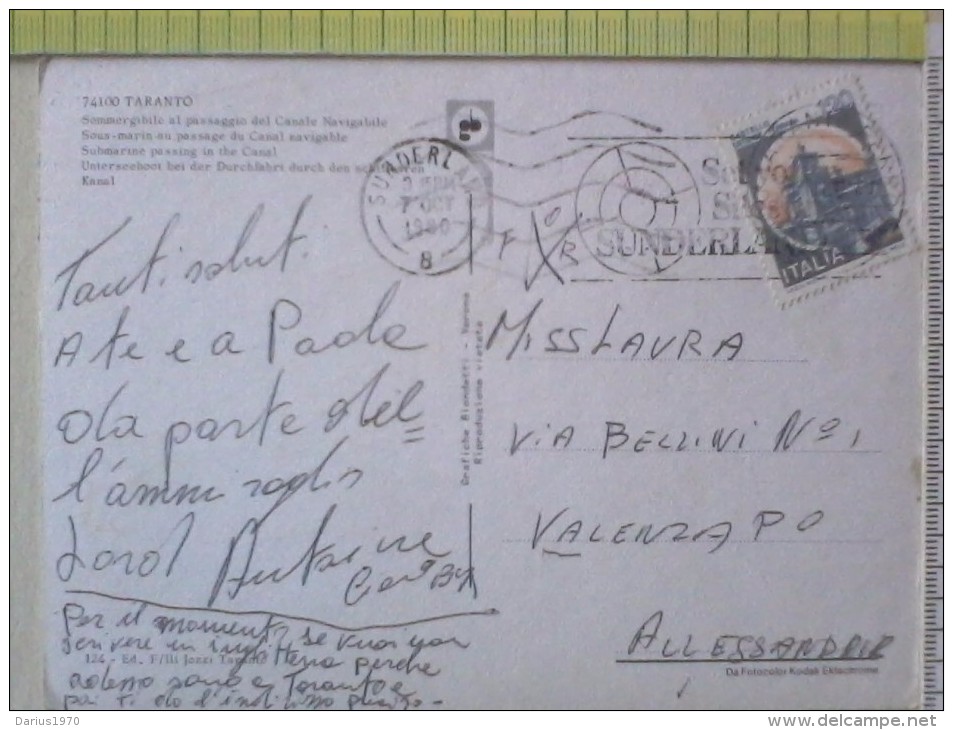 74100 TARANTO
Sommergibile al passaggio del Canale Navigabile
Sous-marin au passage du Canal navigable
Submarine passing in the Canal
Unterseeboot bei der Durchfahrt durch den schiffbaren
Kanal
SUNDERLAND
7 OCT
1980
8
SUNDERLAND
120
ITALIA
Tanti saluti
A te e a Paola
da parte del
l'ammiraglio
Lord
Per il momento se vuoi non
scrivere perche
adesso sono a Taranto e
poi ti do l'indirizzo
124 - Ed. F/lli Jozzi Taranto
Grafiche Biondetti - Verona
Riproduzione vietata
F O R
MISS LAURA
VIA BELLINI Nº 1
VALENZA PO
ALLESSANDRIA
Da Fotocolor Kodak Ektachrome
Darius1970
www.delcampe.net